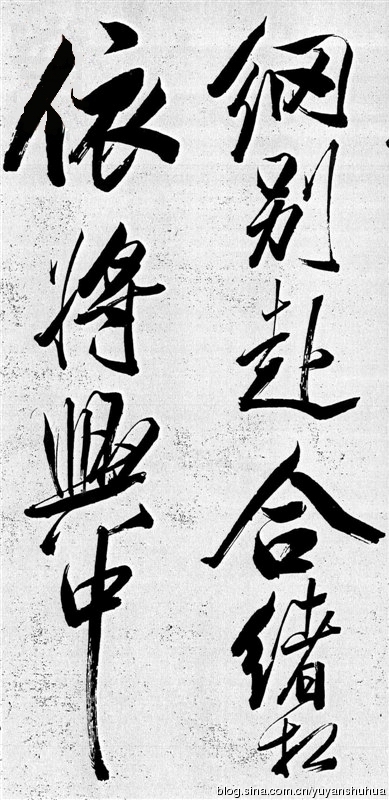 綱別赴合緒
依將興中
blog.sina.com.cn/yuyanshuhua